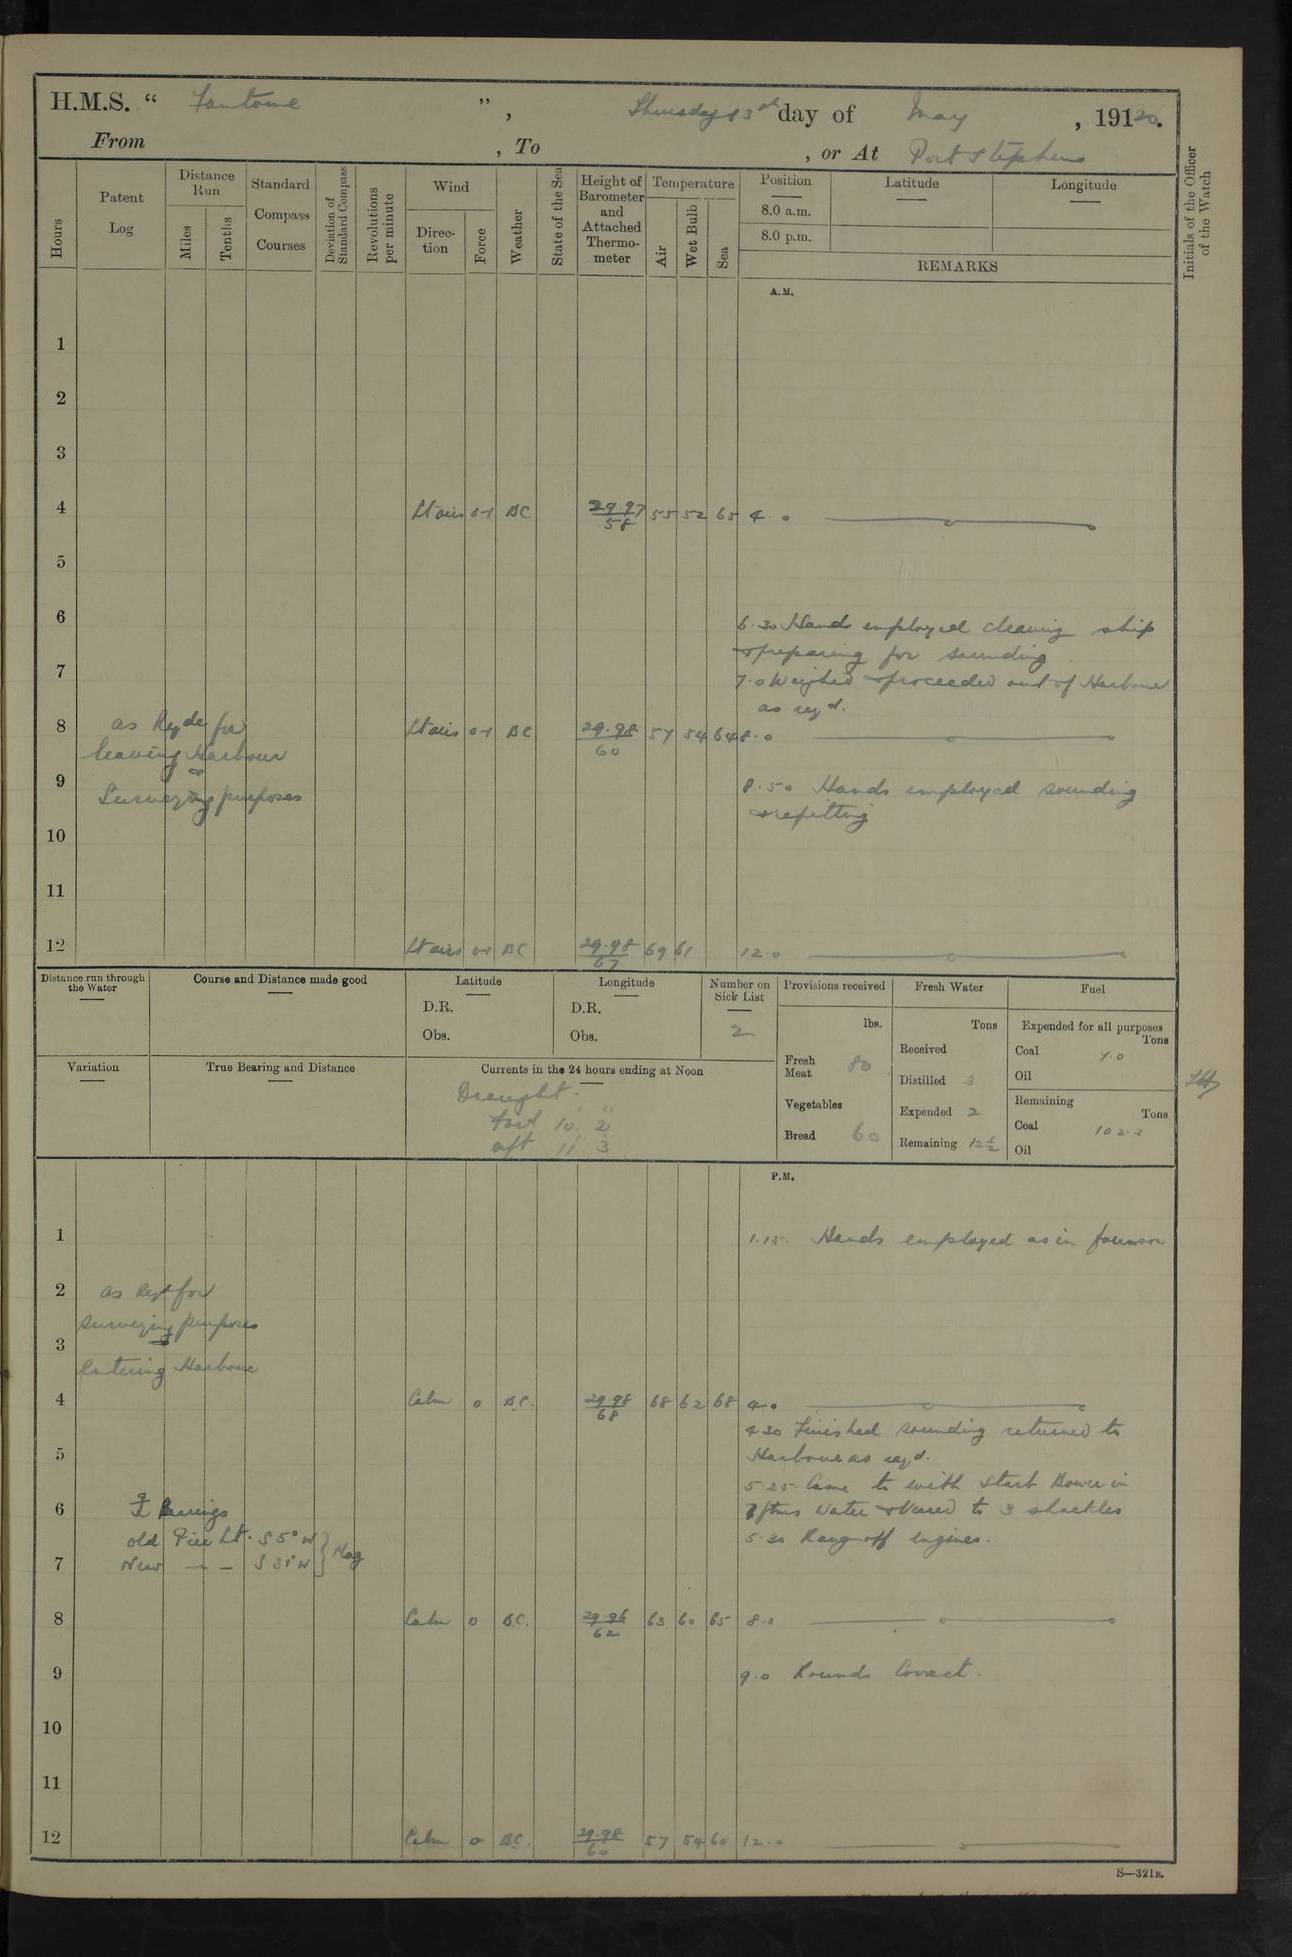 H.M.S. “ Fantome ” , Thursday 13th day of May , 19120.
From , To , or At Port Stephens
Hours
Patent Log
Distance Run
Miles
Tenths
Standard Compass Courses
Deviation of Standard Compass
Revolutions per minute
Wind
Direction
Force
Weather
State of the Sea
Height of Barometer and Attached Thermometer
Temperature
Air
Wet Bulb
Sea
Position
8.0 a.m.
8.0 p.m.
Latitude
Longitude
REMARKS
Initials of the Officer of the Watch
A.M.
1
2
3
4 Lt airs 0-1 BC 29.97/58 55 52 65 4.0
5
6
6.30 Hands employed cleaning ship
& preparing for sounding.
7
7.0 Weighed & proceeded out of Harbour
as reqd.
8 as Reqde for Lt airs 0-1 BC 29.98/60 57 54 64 8.0
leaving Harbour
&
9 Surveying purposes
8.50 Hands employed sounding
& refitting
10
11
12 Lt airs 0-1 BC 29.98/67 69 61 12.0
Distance run through the Water
Course and Distance made good
Latitude
D.R.
Obs.
Longitude
D.R.
Obs.
Number on Sick List
2
Provisions received
lbs.
Fresh Meat 80
Vegetables
Bread 60
Fresh Water
Tons
Received
Distilled 3
Expended 2
Remaining 12½
Fuel
Expended for all purposes
Tons
Coal 7.0
Oil
Remaining
Tons
Coal 102.2
Oil
Variation
True Bearing and Distance
Currents in the 24 hours ending at Noon
Draught.
Ford 10' 2"
aft 11' 3
P.M.
1 1.15. Hands employed as in forenoon
2 as Reqd for
surveying purposes
3
&
Entering Harbour
4 Calm 0 B.C. 29.98/68 68 62 68 4.0
4.30 Finished sounding returned to
Harbour as reqd.
5
5.25. Came to with Starb Bower in
7 fms water & Veered to 3 shackles
6 Bearings
5.30 Rang off engines.
old Pier Lt. S 5° W } Mag
7 New — — S 31° W
8 Calm 0 B.C. 29.96/62 63 60 65 8.0
9 9.0 Rounds Correct.
10
11
12 Calm 0 B.C. 29.98/60 57 54 60 12.0
S—321B.